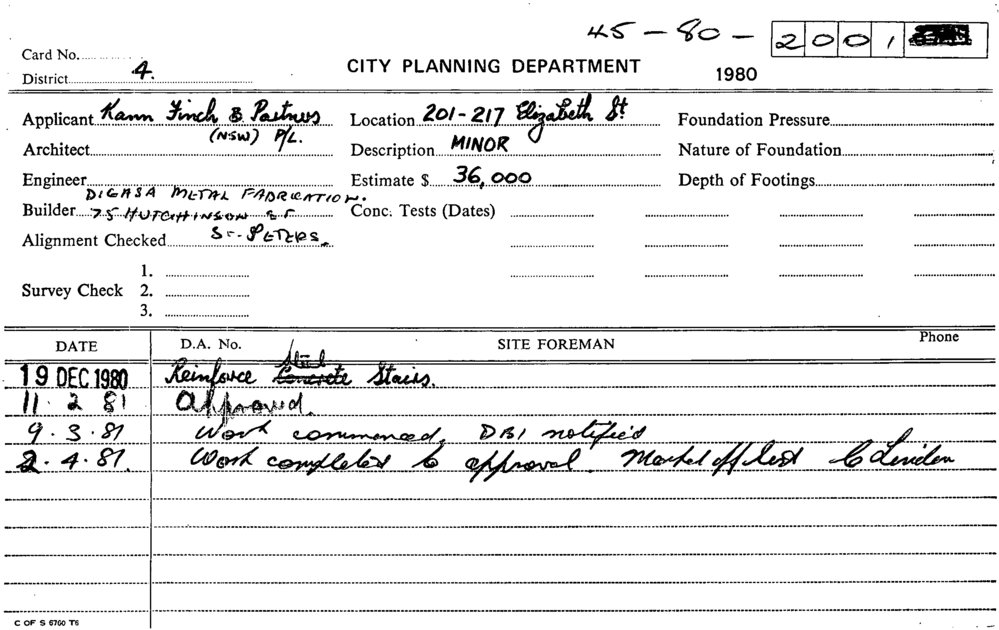 45-80-2001
Card No.
District 4.
CITY PLANNING DEPARTMENT
1980
Applicant Kann Finch & Partners
(NSW) P/L.
Location 201-217 Elizabeth St
Foundation Pressure
Architect
Description MINOR
Nature of Foundation
Engineer
Estimate $ 36,000
Depth of Footings
DIGASA METAL FABRICATION.
Builder 75 HUTCHINSON ST
Conc. Tests (Dates)
Alignment Checked
ST. PETERS.
1.
Survey Check 2.
3.
DATE D.A. No. SITE FOREMAN Phone
Steel
19 DEC 1980 Reinforce Concrete Stairs.
11 2 81 Approved.
9.3.81 Work commenced. DBI notified
2.4.81. Work completed to approval. Marked off list C Linden
C OF S 6760 T6